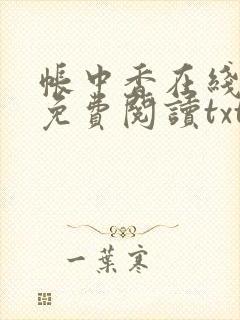 帳中香在綫
免費閱讀txt
一葉寒